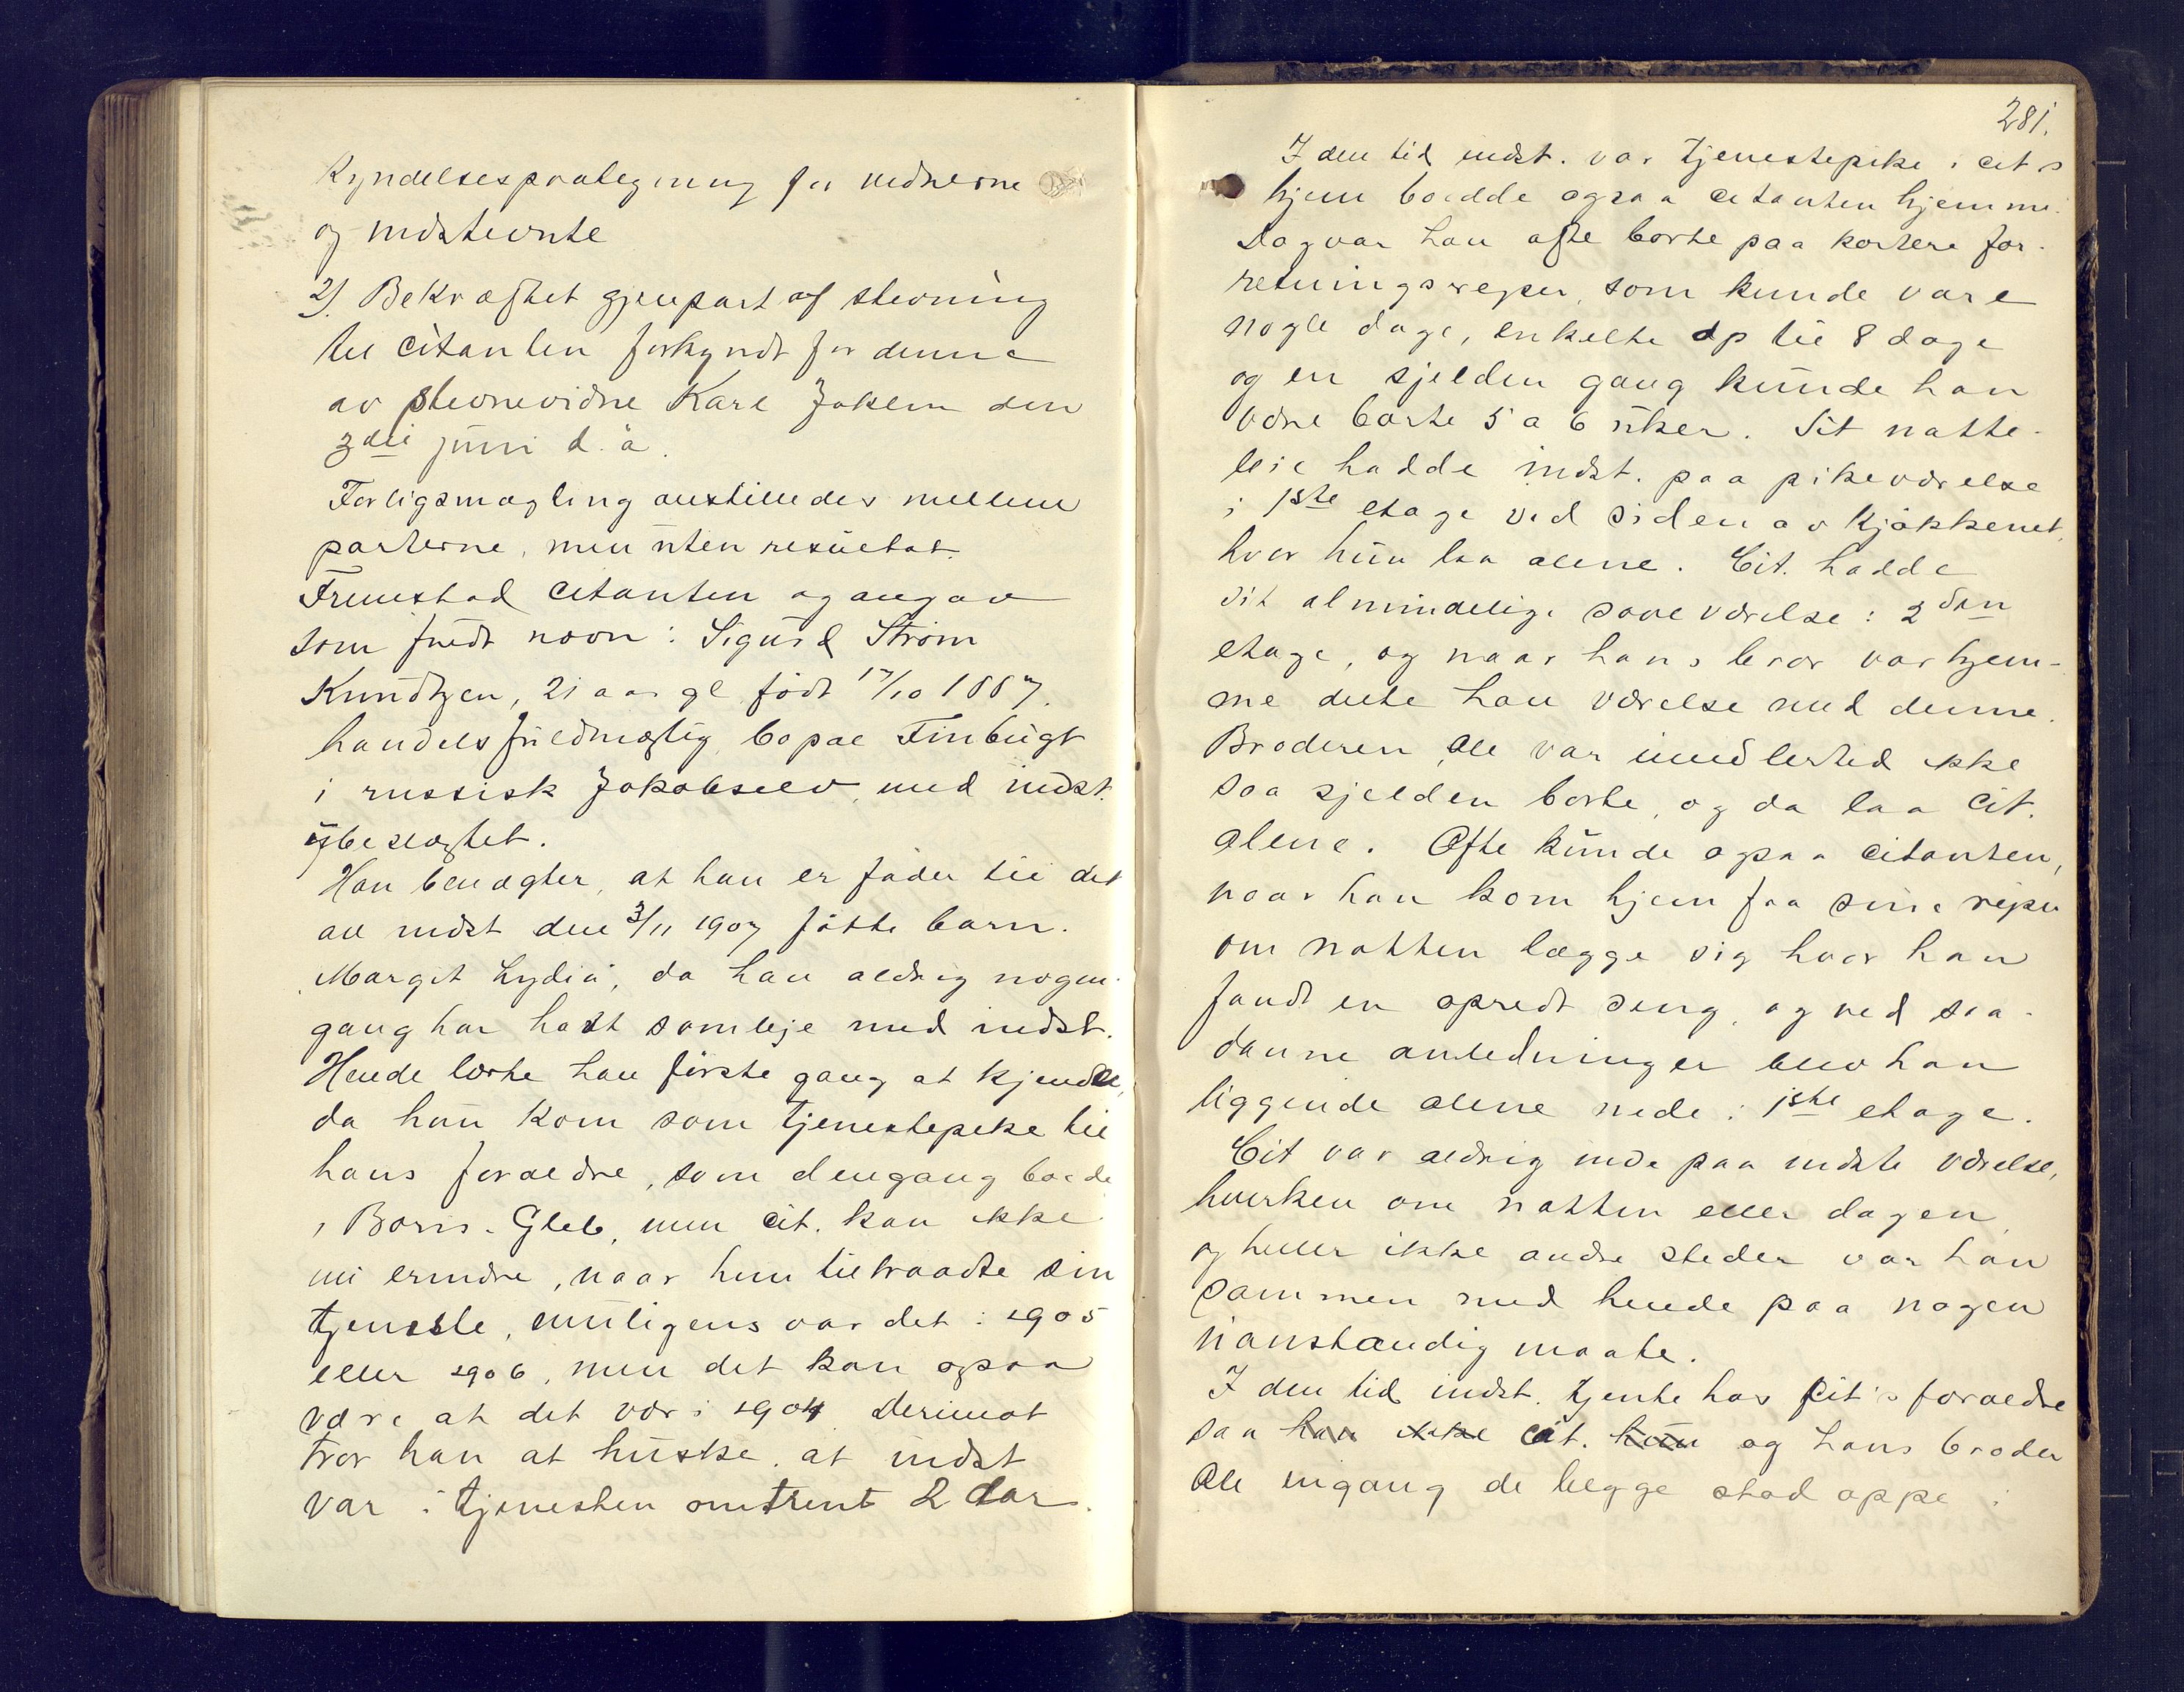 kyndelsespaategning for vidnerne
og indstevnte
2). Bekræftet gjenpart af stevning
til citanten forkyndt for denne
av stevnevidne Karl Joksen den
3die juni d. å.
Forligsmægling anstilledes mellem
parterne, men uten resultat.
Fremstod citanten og angav
som fuldt navn: Sigurd Strøm
Knudtzen, 21 aar gl født 17/10 1887.
handelsfuldmægtig, bopæl Finbugt
i russisk Jakobselv, med indst.
ubeslægtet.
Han benægter, at han er fader til det
av indst den 3/11 1907 fødte barn.
"Margit Lydia", da han aldrig nogen-
gang har hatt samleje med indst.
Hende lærte han første gang at kjende,
da hun kom som tjenestepike til
hans foraeldre, som dengang boede
i Boris-Gleb, men cit. kan ikke
nu erindre, naar hun tiltraadte sin
tjeneste, muligens var det i 1905
eller 1906, men det kan ogsaa
være at det var i 1904 Derimot
tror han at huske, at indst
var i tjenesten omtrent 2 aar.
281.
I den tid indst. var tjenestepike i cit's
hjem boedde ogsaa citanten hjemme.
Dog var han ofte borte paa kortere for-
retningsrejser, som kunde vare
nogle dage, enkelte op til 8 dage
og en sjelden gang kunde han
være borte 5 a 6 uker. Sit natte-
leie hadde indst. paa pikeværelse
i 1ste etage ved siden av kjøkkenet,
hvor hun laa alene. Cit. hadde
sit almindelige soveværelse i 2den
etage, og naar hans bror var hjem-
me delte han værelse med denne.
Broderen Ole var imidlertid ikke
saa sjelden borte, og da laa cit.
alene. Ofte kunde ogsaa citanten,
naar han kom hjem fra sine rejser
om natten lægge sig hvor han
fandt en opredt seng, og ved saa-
danne anledninger blev han
liggende alene nede i 1ste etage.
Cit var aldrig inde paa indste værelse,
hverken om natten eller dagen,
og heller ikke andre steder var han
sammen med hende paa nogen
uanstændig maate.
I den tid indst. tjente hos cit's foraeldre
saa han ikke cit. kun og hans broder
Ole engang de begge stod oppe i